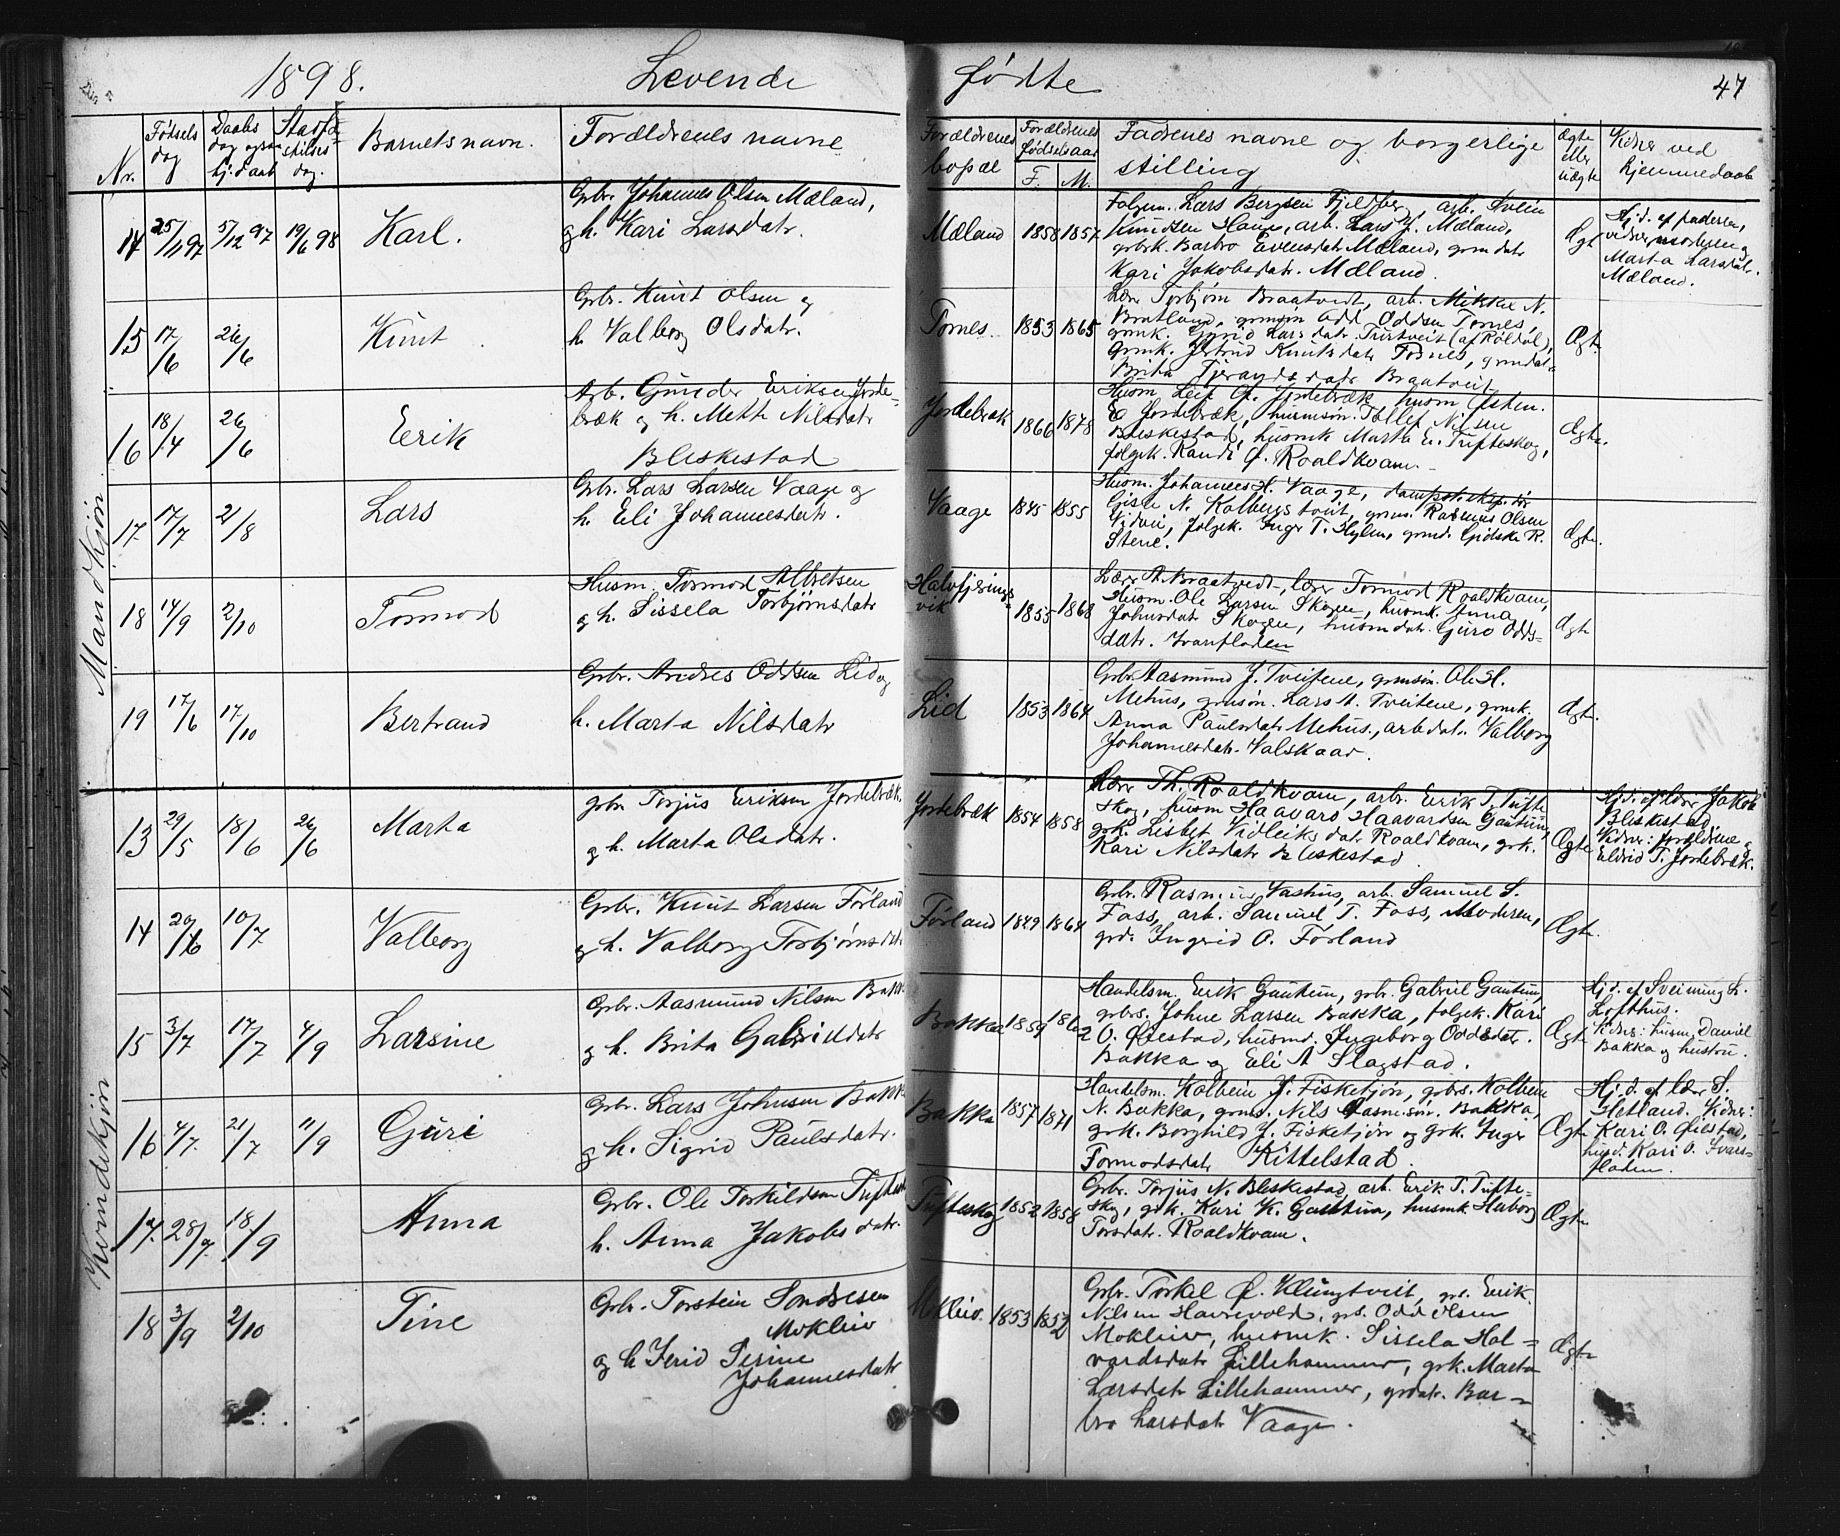 1898. Levende fødte 47
Nr. Fødsels dag Daabs dag ogsaa hj.daab Stadfæstelses dag. Barnets navn. Forældrenes navne Forældrenes bopæl Forældrenes fødselsaar F. M. Fadrenes navne og borgerlige stilling Ægte eller uægte Vidner ved hjemmedaab
Mandkjøn
14 25/11 97 5/12 97 19/6 98 Karl.
Gbr. Johannes Olsen Mæland,
g h. Kari Larsdatr.
Mæland 1858 1857
Folgem. Lars Bergsen Fjeldberg, arb. Svein
Knudsen Hauge, arb. Lars J. Mæland,
gbrk. Barbro Evensdatr Mæland, grmdatr
Kari Jakobsdatr. Mæland.
Ægt
Hj.d. af faderen,
vidner, moderen og
Marta Larsdatr.
Mæland.
15 17/6 26/6 Knut
Gbr. Knut Olsen og
h. Valborg Olsdatr.
Tornes. 1853 1865
Lær Torbjørn Braatvedt, arb. Mikkel N.
Bratland, grmsøn Odd Oddsen Tornes,
grmk. Gunid Larsdatr. Turtveit (af Röldal),
grmk. Jertrud Knutsdatr Tornes, grmdat=
Brita Tjerandsdatr Braatveit
Ægt.
16 18/4 26/6 Erik
Arb. Gunder Eriksen Jorde=
bræk og h. Mette Nilsdatr
Bleskestad
Jordebræk 1866 1878
Husm. Leif A. Jordebræk, husm Østen.
E. Jordebræk, husmsøn. Tollef Nilsen
Bleskestad, husmk Marta E. Tufteskog,
følgek. Randi Ø. Roaldkvam.
Ægte.
17 17/7 21/8 Lars
Gbr. Lars Larsen Vaage og
h. Eli Johannesdatr.
Vaage 1845 1855
Husm. Johannes H. Vaage, dampsk.exp.dir
Gisle N. Kolbenstveit, grms. Rasmus Olsen
Eidvei, følgek. Inger T. Hylen, grmd. Gidske R.
Stene.
Ægte.
18 14/9 2/10 Tormod
Husm. Tormod Albretsen
og h. Sissela Torbjørnsdatr
Halvfjerings=
vik 1855 1868
Lær A. Braatvedt, lær Tormod Roaldkvam,
Husm. Ole Larsen Skogen, husmk. Anna
Johnsdat Skogen, husmdatr. Guro Odds=
datr. Ivarsfladen
Ægte
19 17/6 17/10 Bertrand
Gbr. Andres Oddsen Lid og
h. Marta Nilsdatr
Lid 1853 1864
Gbr. Aasmund J. Tveitene, grmsøn. Ole H.
Mehus, grmsøn. Lars A. Tveitene, grmk.
Anna Paulsdatr Mehus., arbdatr. Valborg
Johannesdatr. Valskaar.
Ægte.
Kvindekjøn
13 29/5 18/6 26/6 Marta
gbr Torjus Eriksen Jordebræk.
g h. Marta Olsdatr.
Jordebræk 1854 1858
Lær Th. Roaldkvam, arb. Erik T. Tufte=
skog, husm Haavard Haavardsen Gautun,
grk. Lisbet Vidleiksdatr Roaldkvam, grk.
Kari Nilsdatr Bleskestad.
Ægte
Hj.d. af lær Jakob
Bleskestad
Vidner: forældrene og
Eldrid T. Jordebræk.
14 20/6 10/7 Valborg
Gbr. Knut Larsen Førland
og h. Valborg Torbjørnsdatr.
Førland 1849 1864
Gbr. Rasmus Vashus, arb. Samuel S.
Foss, arb. Samuel T. Foss, Moderen,
grd. Ingerid O. Førland
Ægte.
15 3/7 17/7 4/9 Larsine
Gbr. Aasmund Nilsen Bakk
og h. Brita Gabrielldatr
Bakka 1859 1862
Handelsm. Erik Gautun, gbr. Gabriel Gautun,
gbrs. Johne Larsen Bakka, folgek. Kari
O. Øiestad, husmd. Ingeborg Oddsdatr.
Bakka og Eli A Slagstad.
Ægte
Hj.d. af Sveinung L.
Lofthus.
Vidner: husm. Daniel
Bakka og hustru.
16 4/7 21/7 11/9 Guri
Gbr. Lars Johnsen Bakk
g h. Sigrid Paulsdatr.
Bakka 1857 1871
Handelsm. Kolbein J. Fisketjøn, gbrs. Kolbein
N. Bakka, grms. Nils Rasm.søn. Bakka,
grk. Borghild J. Fisketjøn og grk. Inger
Tormodsdatr Kittelstad.
Ægte
Hj.d. af lær S.
Hetland. Vidner:
Kari O. Øiestad,
husd. Kari O. Ivars=
fladen.
17. 28/7 18/9 Anna
Gbr. Ole Torkildsen Tuftesk
h. Anna Jakobsdatr.
Tufteskog 1852 1858
Gbr. Torjus N. Bleskestad, arb. Erik T. Tufte=
skog, grk. Kari K. Gautun, husmk. Haborg
Torsdatr. Roaldkvam.
Ægte
18 3/9 2/10 Tine
Gbr. Torstein Sondresen
Mokleiv
og h Jerid Serine
Johannesdatr
Mokleiv. 1853 1852
Gbr. Torkel Ø. Klungtveit, gs. Erik
Nilsen Havrevold, gs. Odd Olsen
Mokleiv, husmk. Sissela Hal=
vardsdatr Lillehammer, grk. Marta
Larsdatr Lillehammer, grdatr. Bar=
bro Larsdatr Vaage.
Ægte